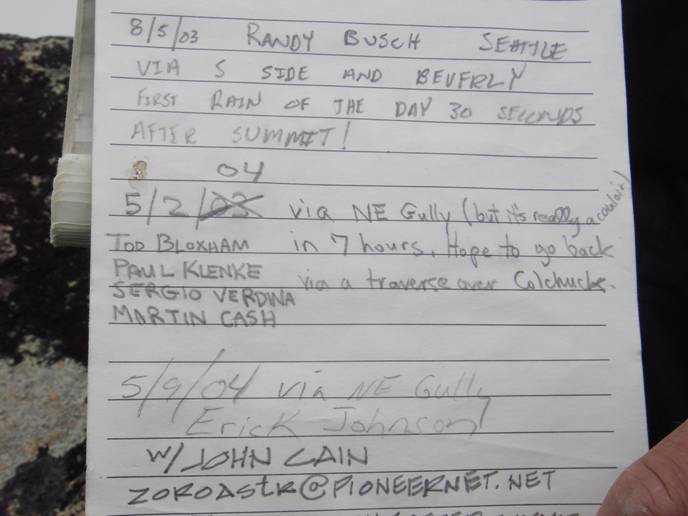 8/5/03 RANDY BUSCH SEATTLE
VIA S SIDE AND BEVERLY
FIRST RAIN OF THE DAY 30 SECONDS
AFTER SUMMIT!
04
5/2/03 via NE Gully (but it's really a couloir)
TOD BLOXHAM in 7 hours. Hope to go back
PAUL KLENKE via a traverse over Colchuck.
SERGIO VERDINA
MARTIN CASH
5/9/04 via NE Gully
Erick Johnson
W/ JOHN CAIN
ZOROASTR@PIONEERNET.NET